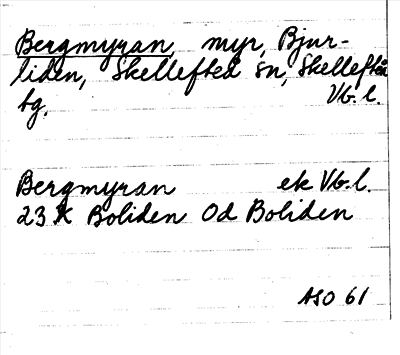 Bergmyran, myr, Bjur-
liden, Skellefteå sn, Skellefteå
tg. Vb. l.
Bergmyran ek Vb. l.
23 K Boliden 0d Boliden
ASO 61